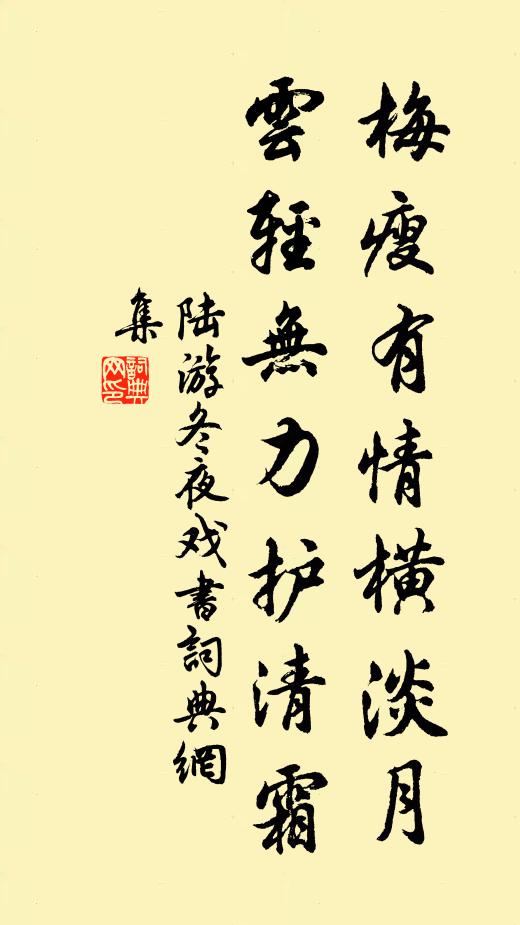 梅瘦有情横淡月
雲輕無力护清霜
陆游冬夜戏書詞典網
集
詞典
网印